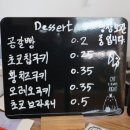 Dessert
곰갈빵 0.2
초코칩쿠키 0.25
황치즈쿠키 0.35
오레오쿠키 0.35
초코브라우니 0.5